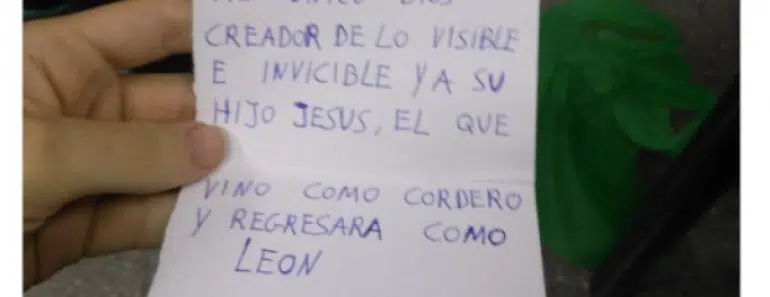 CREADOR DE LO VISIBLE
E INVICIBLE Y A SU
HIJO JESUS, EL QUE
VINO COMO CORDERO
Y REGRESARA COMO
LEON